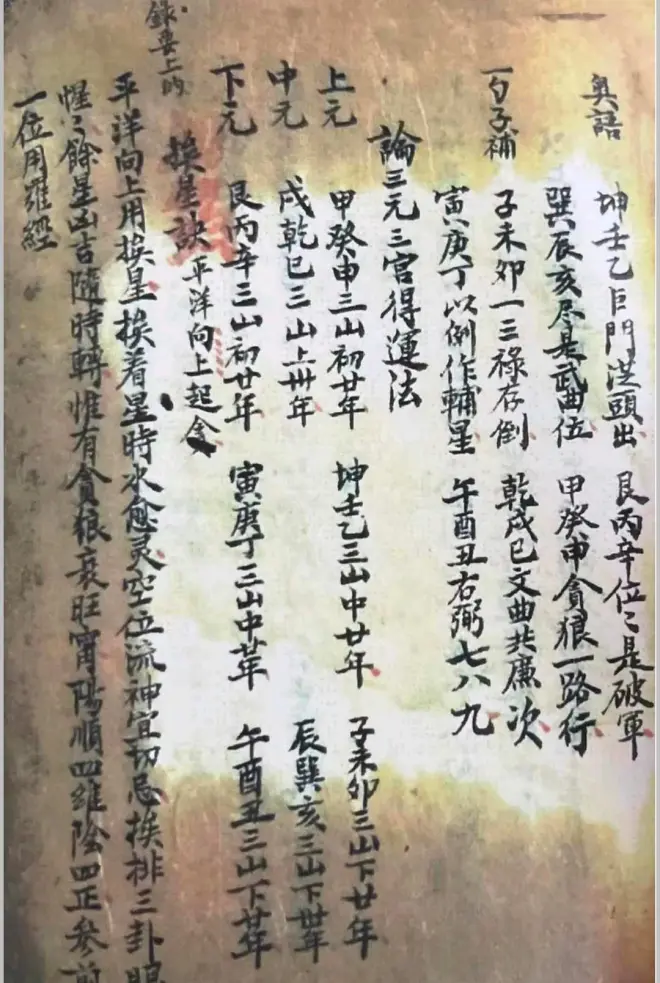 奥語
坤壬乙巨門從頭出 艮丙辛位〻是破軍
巽辰亥尽是武曲位 甲癸申貪狼一路行
一勺子補
子未卯一三祿存倒 乾戌巳文曲共廉次
寅庚丁以例作輔星 午酉丑右弼七八九
論三元三宮得運法
上元 甲癸申三山初廿年 坤壬乙三山中廿年 子未卯三山下廿年
中元 戌乾巳三山上卅年 辰巽亥三山下卅年
下元 艮丙辛三山初廿年 寅庚丁三山中廿年 午酉丑三山下廿年
挨星訣 平洋向上起貪
錄要上的
平洋向上用挨星挨着星時水愈灵空位流神宜切忌挨排三卦
惺〻餘星凶吉隨時轉惟有貪狼衰旺宵陽順四維陰四正參前
一位用羅經